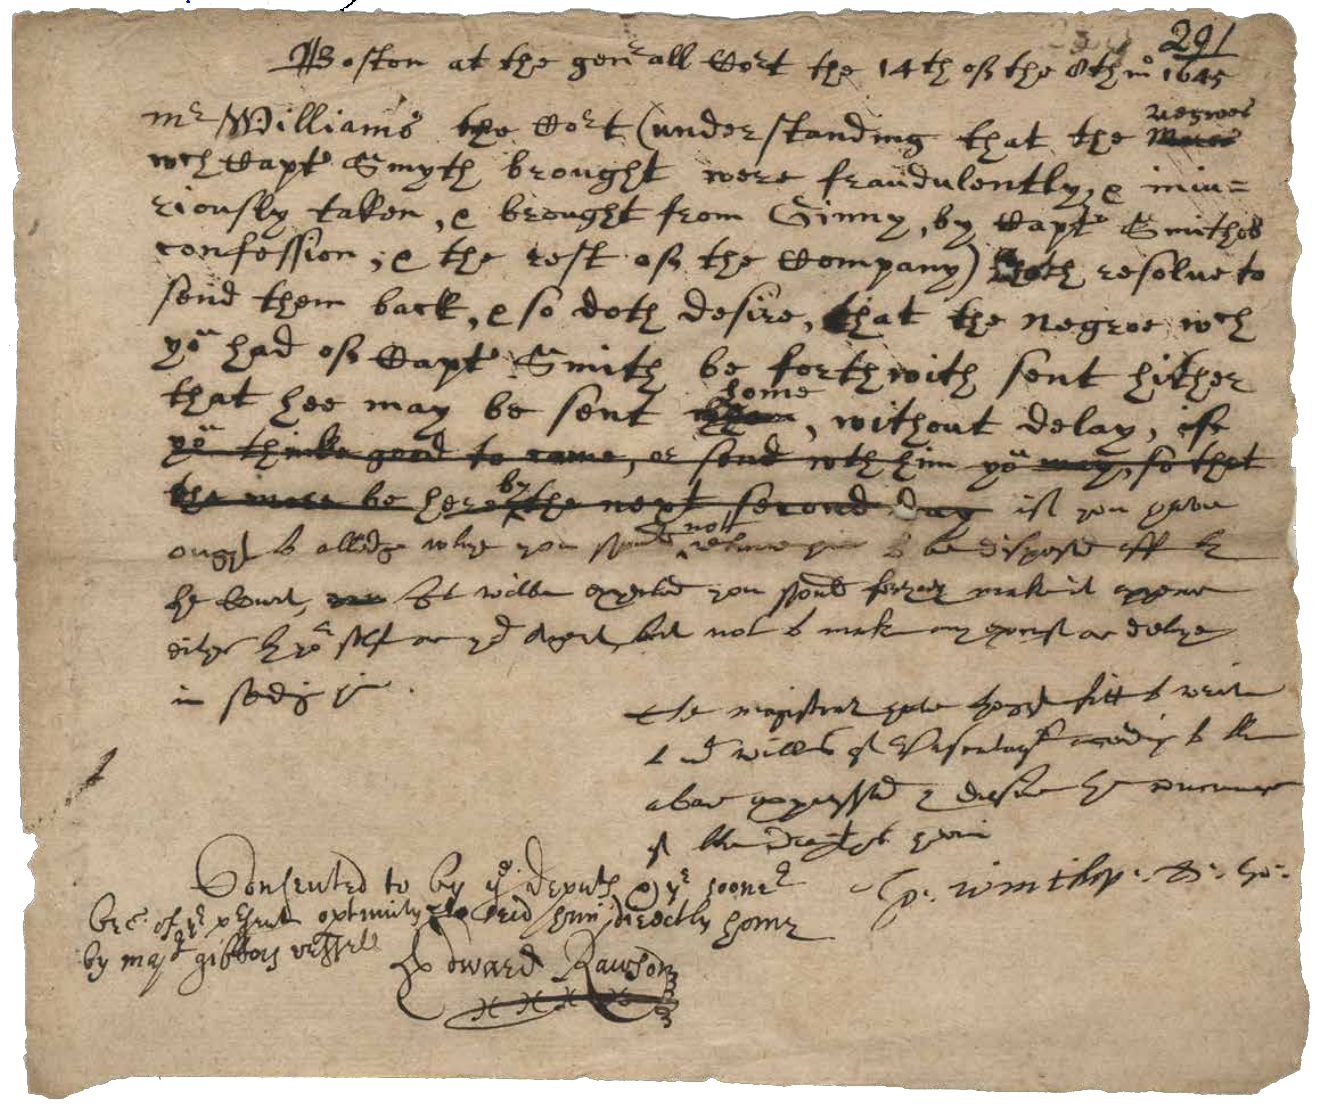 291
Boston at the gen^rall Co^rt the 14th of the 8th m^o 1645
m^r Williams the Co^rt (understanding that the negroes
wch Capt^e Smyth brought were fraudulently, & iniu=
riously taken, & brought from Ginny, by Capt^e Smithes
confession, & the rest of the Company) doth resolue to
send them back, & so doth desire, that the negroe wch
yo^u had of Capt^e Smith be forthwith sent hither
home
that hee may be sent , without delay, if
yo^u thinke good to come, or send wth him yo^u may, so that
the more be here by the next second day if you haue
ought to alledge why you should not returne him to be disposed off by
the Court, It wilbe expected you should further make it appeare
either by yo^r self or yo^r Agent, but not to make any excuse or delaye
in sending
The magistrates haue thought fitt to write
to m^r Williams of Pascataq according to the
aboue expressed & desire the concurrence
of the Deputyes herein
Jo: Winthrop: D: Go:
Consented to by y^e deputs & y^e sooner
bec: of y^e p^rsent optunity to send him directly home
by maj^r gibbons vessell
Edward Rawson